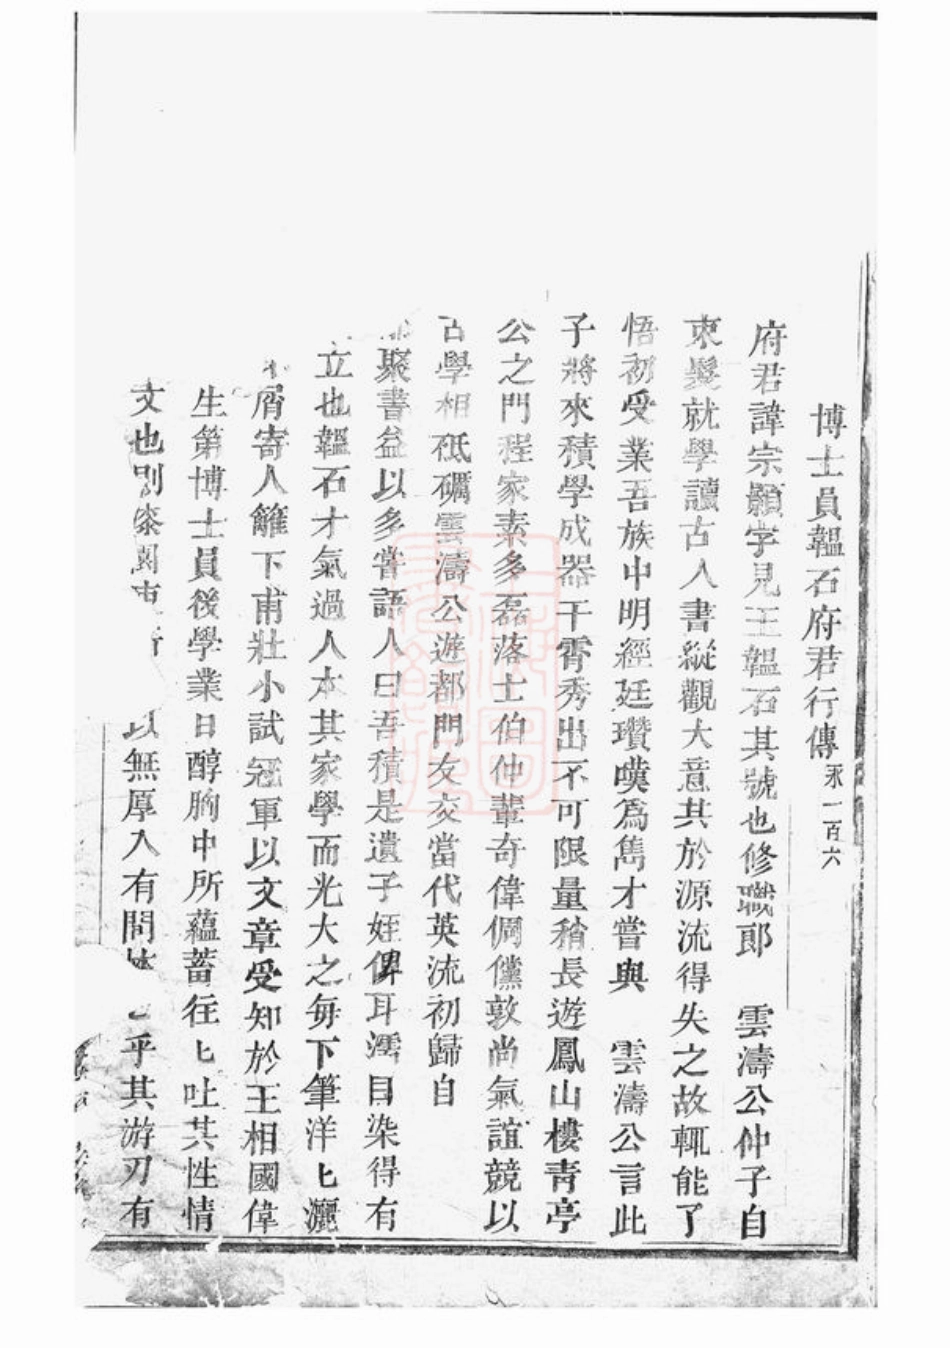 博士員韞石府君行傳永一百六
府君諱宗顥字見王韞石其號也修職郎　雲濤公仲子自
束髮就學讀古人書縱觀大意其於源流得失之故輒能了
悟初受業吾族中明經廷瓚嘆爲雋才嘗與　雲濤公言此
子將來積學成器干霄秀出不可限量稍長遊鳳山樓靑亭
公之門程家素多磊落士伯仲輩奇偉倜儻敦尚氣誼競以
古學相砥礪雲濤公遊都門友交當代英流初歸自
聚書益以多嘗語人曰吾積是遺子姪俾耳濡目染得有
立也韞石才氣過人本其家學而光大之每下筆洋匕灑
屑寄人籬下甫壯小試冠軍以文章受知於王相國偉
生第博士員後學業日醇胸中所蘊蓄往匕吐其性情
文也 以無厚入有間 乎其游刃有